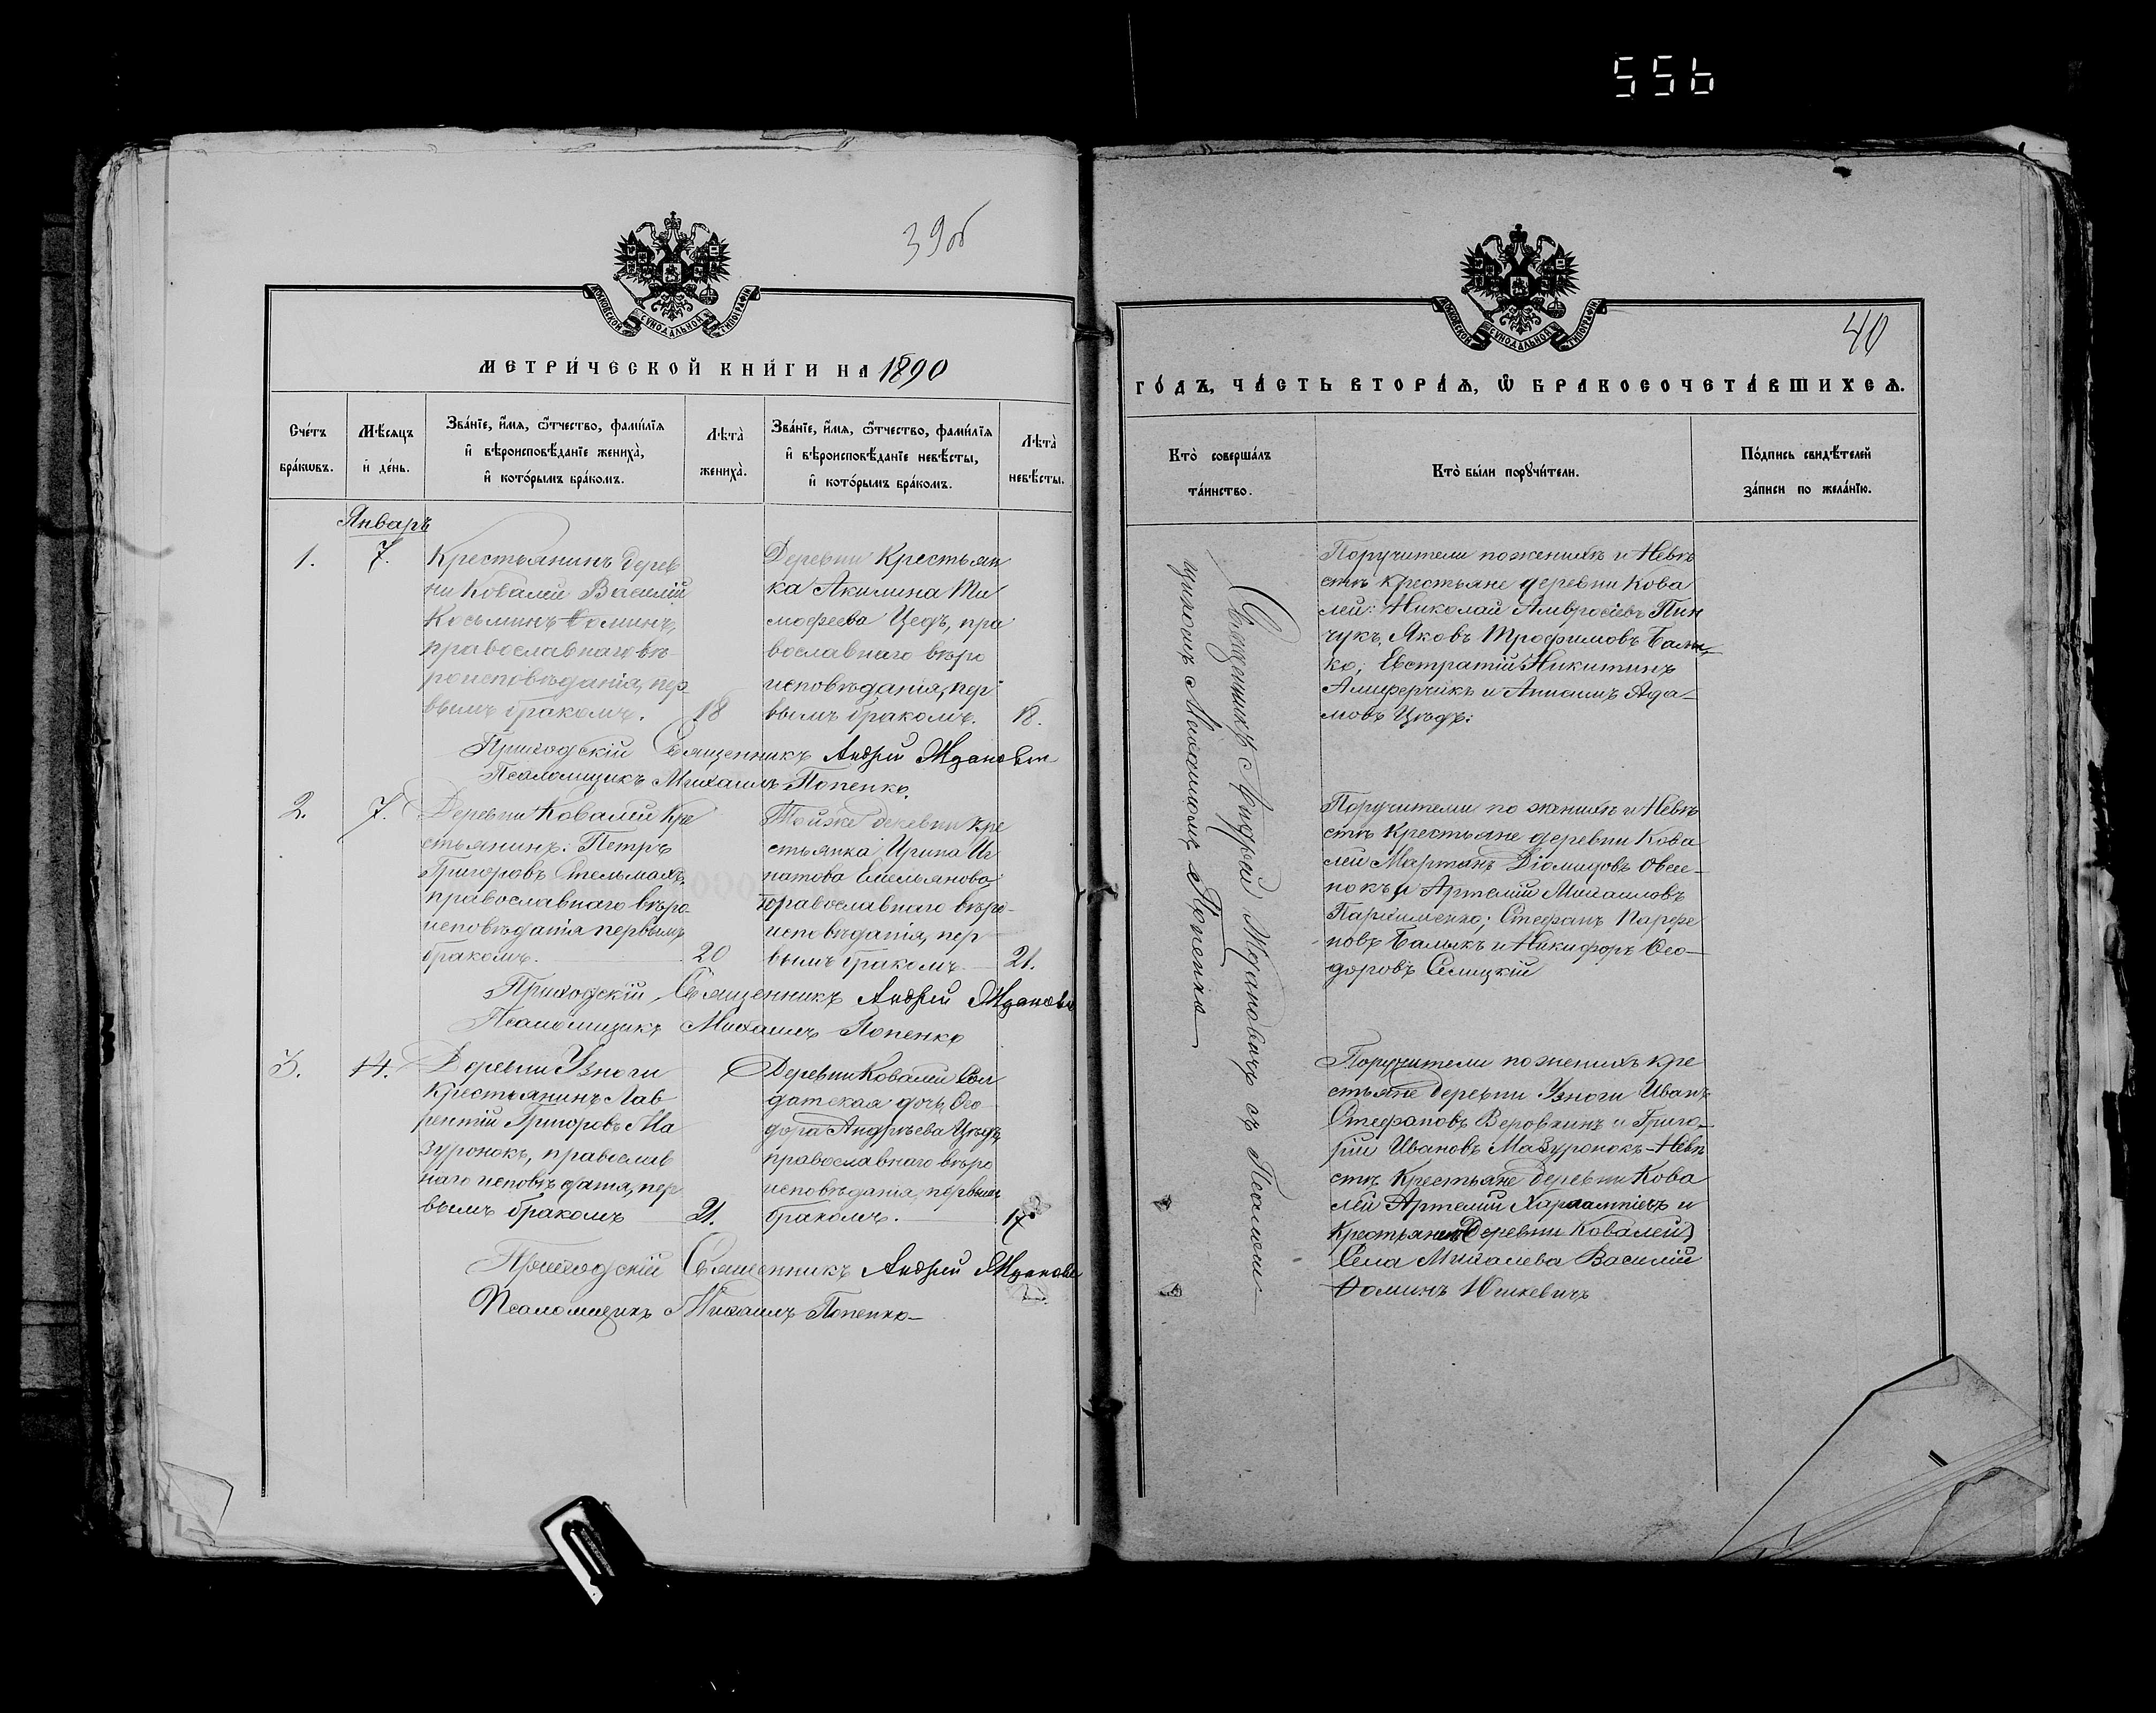 556
39об
МОСКОВСКОЙ СѴНОДАЛЬНОЙ ТИПОГРАФІИ
МЕТРИ́ЧЕСКОЙ КНИ́ГИ НА 1890
Сче́тъ бра́кωвъ.
Мѣ́сяцъ и҆ де́нь.
Зва́нїе, и҆́мѧ, ѻ҆́тчество, фами́лїѧ
и҆ вѣроисповѣ́данїе жениха̀,
и҆ кото́рымъ бра́комъ.
Лѣта̀ жениха̀.
Зва́нїе, и҆́мѧ, ѻ҆́тчество, фами́лїѧ
и҆ вѣроисповѣ́данїе невѣ́сты,
и҆ кото́рымъ бра́комъ.
Лѣта̀ невѣ́сты.
Январь
1.
7.
Крестьянинъ дерев
ни Ковалей Василій
Косьминъ Ѳоминъ,
православнаго вѣ-
роисповѣданія, пер-
вымъ бракомъ.
18
Деревни Крестьян
ка Акилина Ти
мофеева Цедъ, пра
вославнаго вѣро
исповѣданія, пер
вымъ бракомъ.
18.
Приходскій Священникъ Андрей Ждановичъ
Псаломщикъ Михаилъ Попенко.
2.
7.
Деревни Ковалей Кре
стьянинъ: Петръ
Григоровъ Стельмахъ,
православнаго вѣро-
исповѣданія первымъ
бракомъ.
20
Тойже деревни кре
стьянка Ирина Иг
натова Емельянова,
православнаго вѣро-
исповѣданія, пер
вымъ бракомъ.
21.
Приходскій Священникъ Андрей Жданови
Псаломщикъ Михаилъ Попенко
3.
14.
Деревни Узноги
Крестьянинъ Лав
рентій Григоровъ Ма
зуронокъ, православ
наго исповѣданія, пер
вымъ бракомъ
21.
Деревни Ковалей Сол
датская дочь Ѳео
дора Андреева Цѣдъ,
православнаго вѣро
исповѣданія, первымъ
бракомъ.
17.
Приходскій Священникъ Андрей Жданови
Псаломщикъ Михаилъ Попенко
МОСКОВСКОЙ СѴНОДАЛЬНОЙ ТИПОГРАФІИ
40
ГО́ДЪ, ЧА́СТЬ ВТОРА́Ѧ, Ѽ БРАКОСОЧЕТА́ВШИХСѦ.
Кто̀ соверша́лъ
та́инство.
Кто̀ бы́ли порꙋчи́тели.
По́дпись свидѣ́телей
за́писи по жела́нїю.
Священникъ Андрей Ждановичъ съ Псалом-
щикомъ Михаиломъ Попенко
Поручители по женихѣ и Невѣ
стѣ крестьяне деревни Кова
лей: Николай Амвросіевъ Пин
чукъ, Яковъ Трофимовъ
ко; Евстратій Никитинъ
Алиферчикъ и Анисимъ Ада-
мовъ Цѣдъ:
Поручители по женихѣ и Невѣ
стѣ крестьяне деревни Кова
лей Мартинъ Діомидовъ Овсе-
нокъ и Артемій Михаиловъ
Пархименко; Стефанъ Парфе
новъ Балыкъ и Никифоръ Ѳео-
доровъ Селицкій
Поручители по женихѣ кре
стьяне деревни Узноги Иванъ
Стефановъ Веровкинъ и Григо-
рій Ивановъ Мазуронокъ-Невѣ
стѣ Крестьяне деревни Кова
лей Артемій Харлампіевъ и
Крестьянинъ Деревни Ковалей
Села Михалева Василій
Ѳоминъ Юшкевичъ